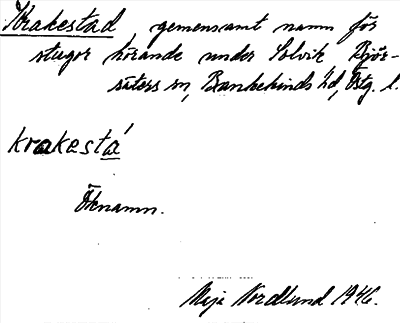 Krakestad gemensamt namn för
stugor hörande under Solvik Björ-
säters sn, Bankekinds hd, Östg. l.
krakestá
Öknamn.
Maja Nordlund 1946.